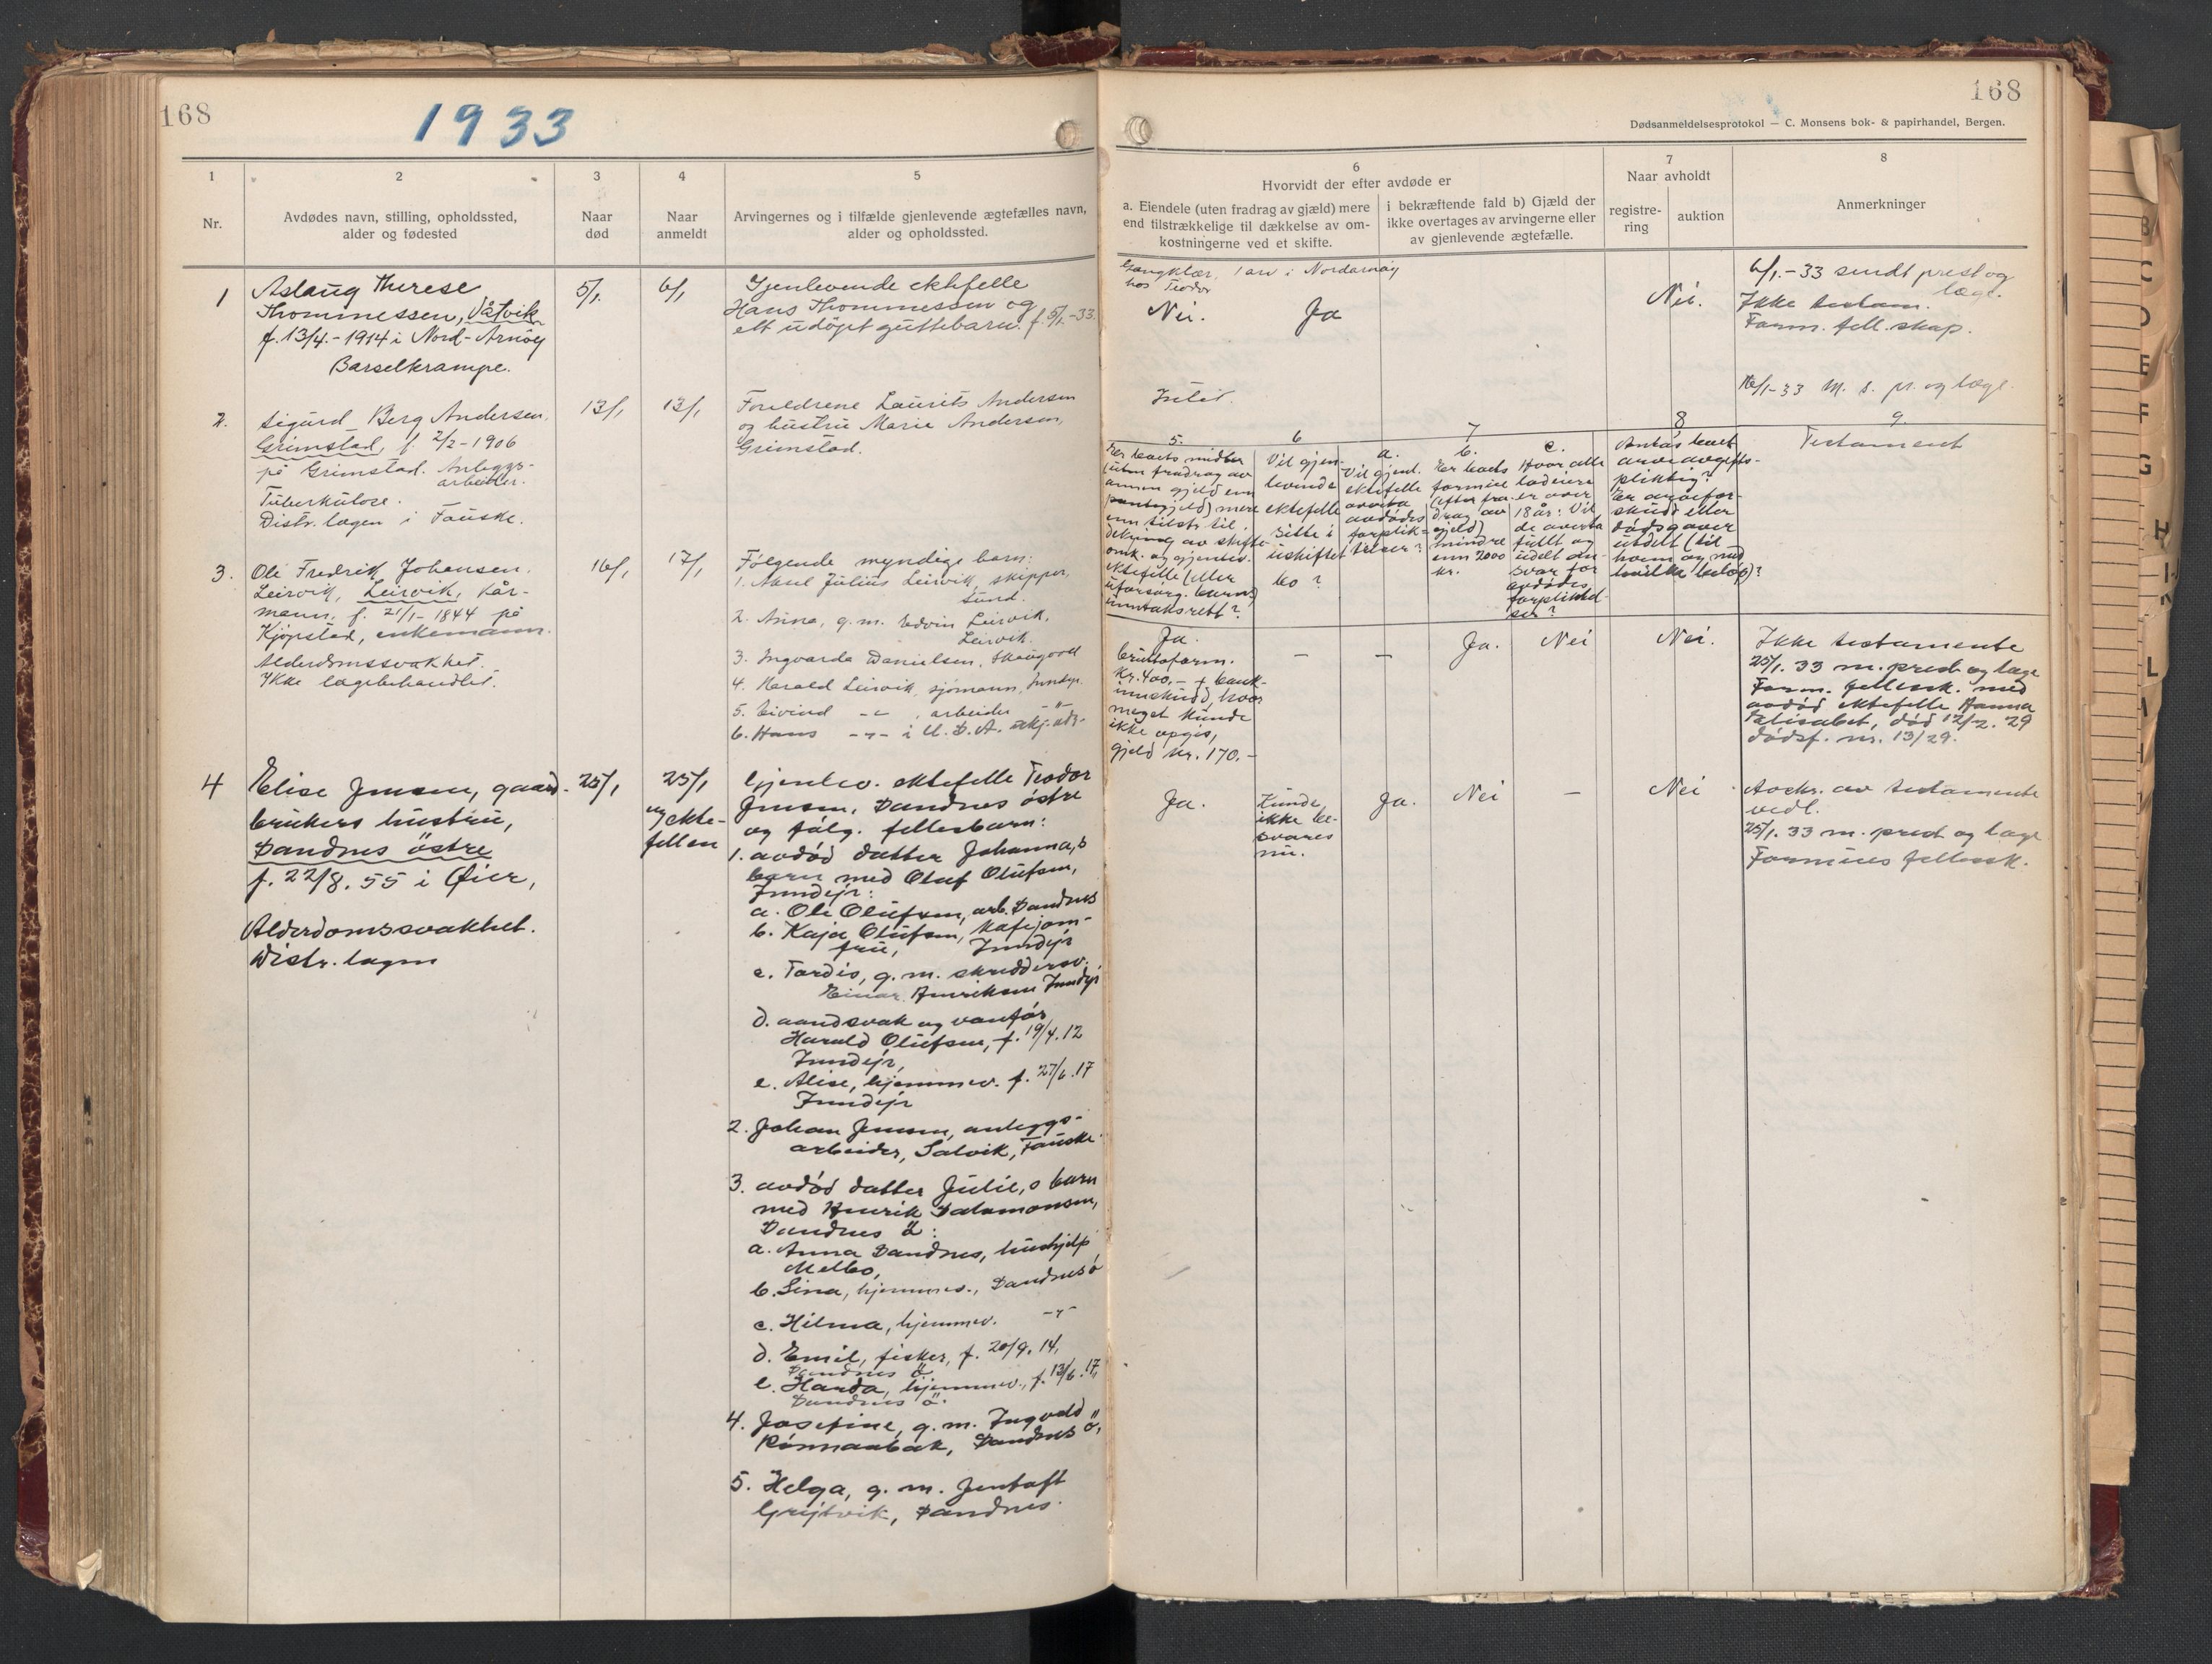 168
1933
1
2
3
4
5
Nr.
Avdødes navn, stilling, opholdssted,
alder og fødested
Naar
død
Naar
anmeldt
Arvingernes og i tilfælde gjenlevende ægtefælles navn,
alder og opholdssted.
1
Aslaug Therese
Thommessen, Våtvik
f. 13/4.-1914 i Nord-Arnöy
Barselkrampe.
5/1.
6/1
Gjenlevende ektefelle
Hans Thommessen og
ett udöpt guttebarn. f. 5/1.-33.
2.
Sigurd Berg Andersen.
Grimstad, f. 2/2-1906
på Grimstad. Anleggs-
arbeider.
Tuberkulose.
Distr. lægen i Fauske.
13/1
13/1
Foreldrene Laurits Andersen
og hustru Marie Andersen,
Grimstad.
3.
Ole Fredrik Johansen.
Leirvik, Leirvik, kår-
mann, f. 21/1-1844 på
Kjöpstad, enkemann.
Alderdomssvakhet.
Ikke lægebehandlet.
16/1
17/1
Følgende myndige barn:
1. Julius Leirvik, skipper,
Sund.
2. Anna, g.m. Edvin Leirvik,
Leirvik.
3. Ingvarda Danielsen,
4. Harald Leirvik, sjömann,
5. Eivind -"- , arbeider -"-
6. Hans -"- i U.S.A.
4
Elise Jensen, gaard-
brukers hustru,
Sandnes östre
f. 22/8. 55 i Øier,
Alderdomssvakhet.
Distr. lægen
25/1
25/1
av ekte-
fellen
Gjenlev. ektefelle Teodor
Jensen, Sandnes östre
og fölg. fellesbarn:
1. avdöd datter Johanna,s
barn med Oluf Olufsen,
Inndyr:
a. Ole Olufsen, arb. Sandnes
b. Kaja Olufsen, kafejom-
fru, Inndyr
c. Tordis, g.m. skreddersv.
Einar Henriksen Inndyr
d. aandsvak og vanfør
Harald Olufsen, f. 19/4. 12
Inndyr,
e. Alise, hjemmev. f. 27/6. 17
Inndyr
2. Johan Jensen, anleggs-
arbeider, Salvik, Fauske
3. avdöd datter Julie,s barn
med Henrik Salamonsen,
Sandnes ö:
a. Anna Sandnes, hushjelp
Melbo,
b. Lina, hjemmev., Sandnes ö
c. Hilma, hjemmev. -"-
d. Emil, fisker, f. 20/9. 14,
Sandnes ö
e. Harda, hjemmev., f. 13/6. 17,
Sandnes ö.
4. Josefine, g.m. Ingvald
Rönnaabak, Sandnes ö,
5. Helga, g.m. Jentoft
Gröjtvik, Sandnes.
168
Dødsanmeldelsesprotokol — C. Monsens bok- & papirhandel, Bergen.
6
Hvorvidt der efter avdøde er
a. Eiendele (uten fradrag av gjæld) mere
end tilstrækkelige til dækkelse av om-
kostningerne ved et skifte.
i bekræftende fald b) Gjæld der
ikke overtages av arvingerne eller
av gjenlevende ægtefælle.
7
Naar avholdt
registre-
ring
auktion
8
Anmerkninger
Gangklær, 1 arv i Nordarnøy
hos Teodor
Nei.
Ja
Nei.
6/1.-33 sendt prest og
læge.
Ikke testam.
Form. fell.skap.
Intet.
16/1-33 M. s. pr. og læge.
5.
6
7
8
9.
Er boets midler
(uten fradrag av
annen gjeld enn
pantegjeld) mere
enn tilstr. til
dekning av skifte-
omk. og gjenlev.
ektefelle (eller
uforsørg. barns)
unntaksrett?
Vil gjen-
levende
ektefelle
sitte i
uskiftet
bo?
a.
Vil gjenl.
ektefelle
overta
avdødes
forplik-
telser?
b.
Er boets
formue
(efter fra-
drag av
gjeld)
mindre
enn 2000
kr.
c.
Hvor alle
lodeiere
er over
18 år: Vil
de overta
fullt og
udelt an-
svar for
avdødes
forpliktel-
ser?
Antas boet
arveavgifts-
pliktig?
Er arvefor-
skudd eller
dødsgaver
utdelt (til
hvem og med
hvilke beløp)?
Testament
Ja.
Bruttoform.
kr. 400,- + bank-
innskudd, hvor
meget kunde
ikke opgis,
gjeld kr. 170.-
—
—
Ja.
Nei
Nei.
Ikke testamente
25/1. 33 m. prest og læge
Form. fellessk. med
avdød ektefelle Hanna
Elisabet, død 12/2. 29
dødsf. nr. 13/29.
Ja.
Kunde
ikke be-
svares
nu.
Ja.
Nei
—
Nei
Avskr. av testamente
vedl.
25/1. 33 m. prest og læge
Formues fellessk.
B
C
D
E
F
G
H
L